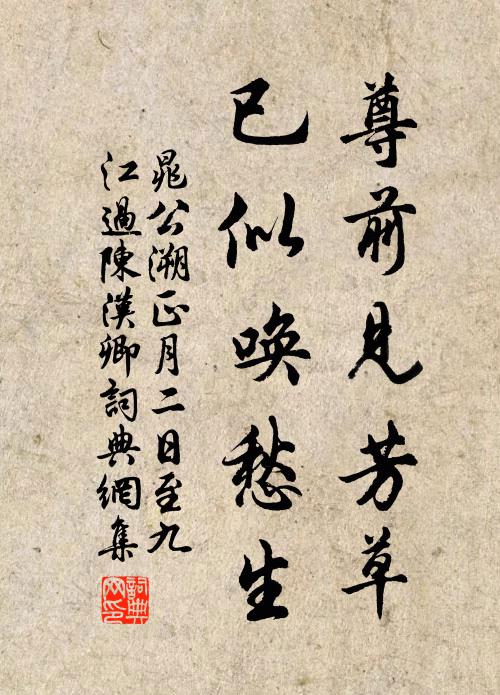 尊前見芳草
已似喚愁生
晁公溯正月二日至九
江過陳漢卿詞典網集
詞典
網印